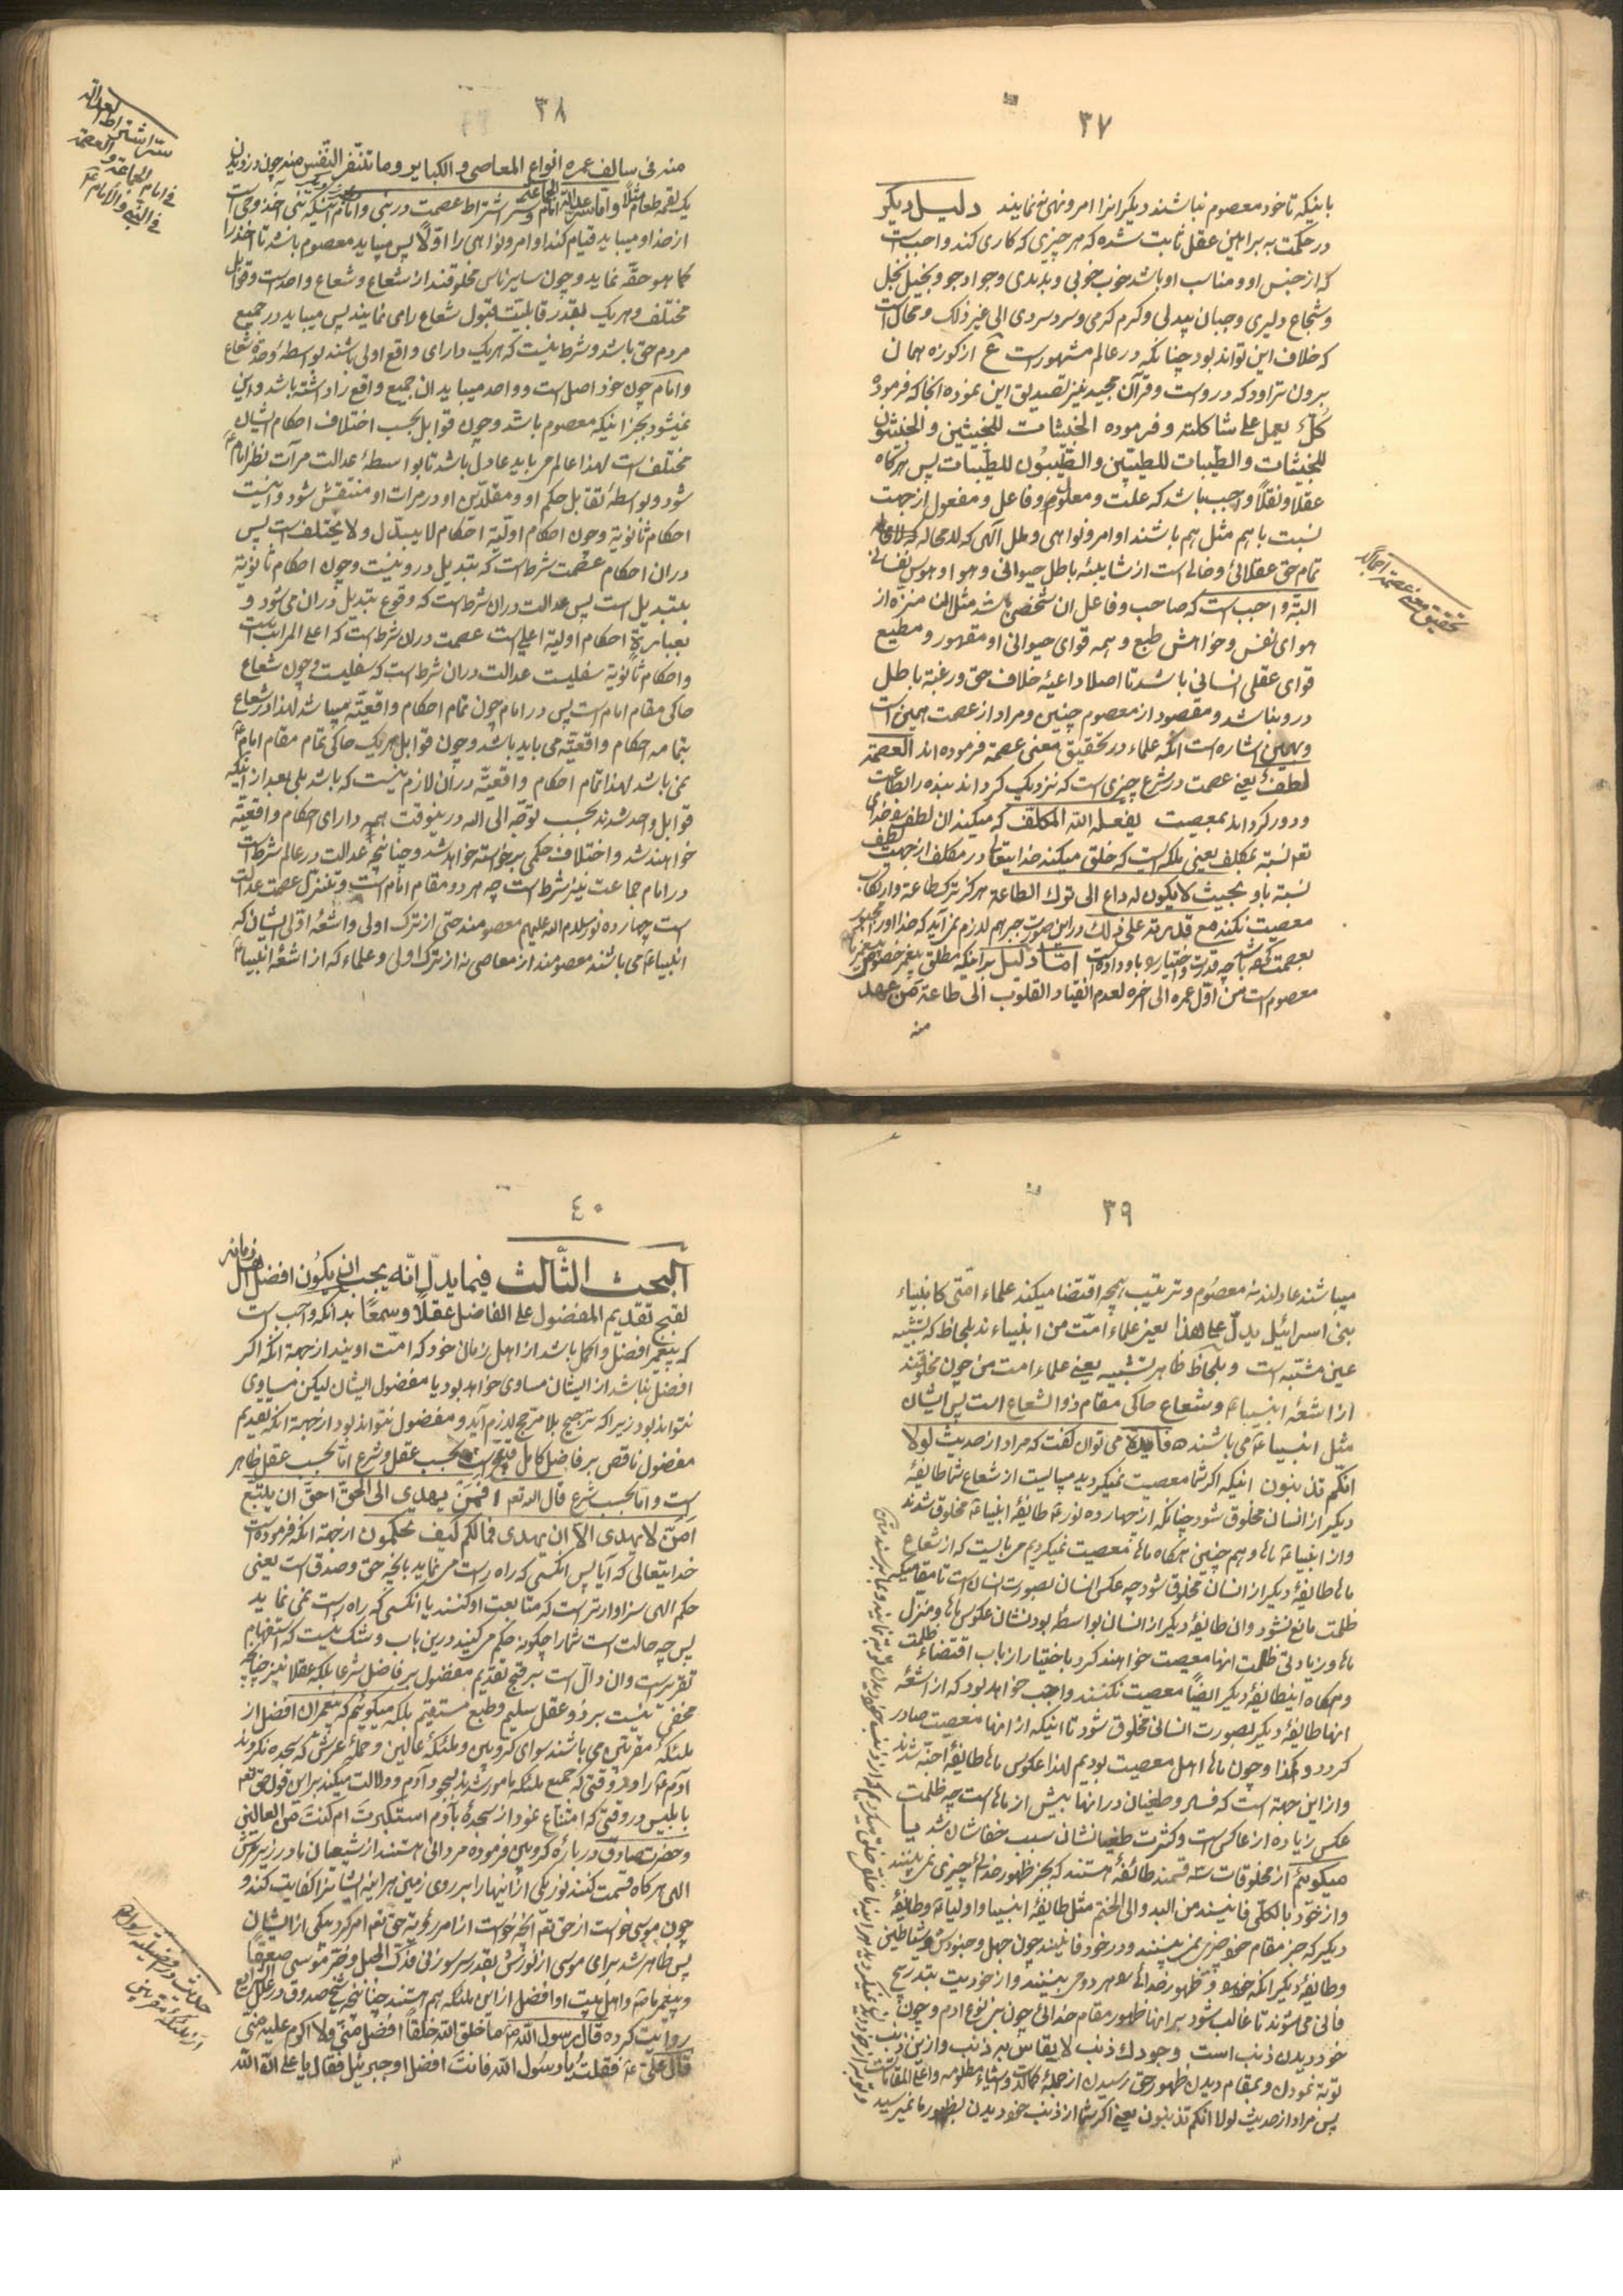 ٣٧
باینکه تا خود معصوم نباشند دیگرانرا امر و نهی نمی‌نمایند دلیل دیگر
در حکمت به براهین عقل ثابت شده که هر چیزی که کاری کند واجب است
که از جنس او و مناسب او باشد خوب خوبی و بد بدی و جواد جود و بخیل بخل
و شجاع دلیری و جبان بیدلی و گرم گرمی و سرد سردی الی غیر ذلک و محال است
که خلاف این تواند بود چنانکه در عالم مشهور است ع از کوزه همان
برون تراود که در اوست و قرآن مجید نیز تصدیق این نموده انجا که فرموده
کلّ یعمل علی شاکلته و فرموده الخبیثات للخبیثین و الخبیثون
للخبیثات و الطّیبات للطیبین و الطّیبون للطّیبات پس هرگاه
عقلا و نقلاً واجب باشد که علت و معلول و فاعل و مفعول از جهت
نسبت باهم مثل هم باشند اوامر و نواهی و ملل آلهی که لا محاله
تمام حق عقلائی و خالی است از شایبئه باطل حیوانی و هوا و هوس نفسانی
البتّه واجب است که صاحب و فاعل ان شخصی باشد مثل ان منزّه از
هوای نفس و خواهش طبع و همه قوای حیوانی او مقهور و مطیع
قوای عقلی انسانی باشد تا اصلا داعیهٔ خلاف حق و رغبة باطل
درو نباشد و مقصود از معصوم چنین و مراد از عصمت همین است
و بهمین اشاره است انکه علماء در تحقیق معنی عصمة فرموده اند العصمة
لطفٌ یعنی عصمت در شرع چیزی است که نزدیک گرداند بنده را بطاعت
و دور گرداند بمعصیت یفعله الله المکلف که میکند ان لطف را خدای
تعالی نسبة بمکلف یعنی ملکه ایست که خلق میکند خدایتعالی در مکلف از جهت لطف
نسبة باو بحیث لا یکون له داع الی ترک الطاعة هرگز ترک طاعة و ارتکاب
معصیت نکند مع قدرته علی ذلک و در این صورت جبر هم لازم نمی‌آید که خدا او را مجبور
بعصمت کرده باشد چه قدرت و اختیار باو داده است امّا دلیل براینکه مطلق پیغمبر
معصوم است من اوّل عمره الی اخره لعدم انقیاد القلوب الی طاعة من عهد
منه
تحقیق معنی عصمة اجمالا
٣٨
منه فی سالف عمره انواع المعاصی و الکبایر و ما تنفّر النّفس منه چون دزدیدن
یک لقمه طعام مثلاً و امّا سر اشتراط عصمت در نبی و امام آنیکه نبی اخذ وحی است
از خدا و میباید قیام کند اوامر و نواهی را اوّلاً پس میباید معصوم باشد تا اخذ را
کما هو حقّه نماید و چون سایر ناس مخلوقند از شعاع و شعاع واحد است و قوابل
مختلف و هریک بقدر قابلیت قبول شعاع را می نمایند پس میباید در جمیع
مردم حق باشد و شرط نیست که هریک دارای واقع اولی باشند بواسطهٔ وحدة شعاع
و امام چون خود اصل است و واحد میباید ان جمیع واقع را داشته باشد و این
نمیشود بجز اینکه معصوم باشد و چون قوابل بحسب اختلاف احکام ایشان
مختلف است لهذا عالم می باید عادل باشد تا بواسطهٔ عدالت مرآت نظر امام
شود و بواسطهٔ تقابل حکم او و مقلدین او در مرات او منتقش شود و آنست
احکام ثانویة و چون احکام اولیّة احکام لا یتبدّل و لا یختلف است پس
در ان احکام عصمت شرط است که تبدیل درو نیست و چون احکام ثانویة
بتبدیل است پس عدالت در ان شرط است که وقوع تبدیل در ان میشود و
بعبارة احکام اولیة اعلی است عصمت در ان شرط است که اعلی المراتب است
و احکام ثانویة سفلیست عدالت در ان شرط است که سفلیست و چون شعاع
حاکی مقام امام است پس در امام چون تمام احکام واقعیّة میباشد لهذا در شعاع
بتمامه احکام واقعیّه می باید باشد و چون قوابل هریک حاکی تمام مقام امام
نمی باشد لهذا تمام احکام واقعیّة در ان لازم نیست که باشد بلی بعد از اینکه
قوابل واحد شدند بحسب توجّه الی الله در ینوقت همه دارای احکام واقعیّة
خواهند شد و اختلاف حکمی برخواسته خواهد شد و چنانچه عدالت در عالم شرط است
در امام جماعت نیز شرط است چه هر دو مقام امام است و تنزّل عصمت عدالت
است چهارده نور سلام الله علیهم معصومند حتی از ترک اولی و اشعهٔ اوّلی ایشان که
انبیاء می باشند معصومند از معاصی نه از ترک اولی و علماء که از اشعهٔ انبیاء
سرّ اشتراط العدالة
فی امام الجماعة و العصمة
فی النّبی و الامام
٣٩
میباشند عادلند نه معصوم و ترتیب همچه اقتضا میکند علماء امّتی کانبیاء
بنی اسرائیل یدلّ علی هذا یعنی علماء امّت من انبیاءند بلحاظ که تشبّه
عین مشتبه است و بلحاظ ظاهر تشبیه یعنی علماء امت من چون مخلوقند
از اشعهٔ انبیاء و شعاع حاکی مقام ذو الشعاع است پس ایشان
مثل انبیاء می باشند فایدة می توان گفت که مراد از حدیث لولا
انّکم تذنبون اینکه اگر شما معصیت نمیکردید میبایست از شعاع شما طایفهٔ
دیگر از انسان مخلوق شود چنانکه از چهارده نور طایفهٔ انبیاء مخلوق شدند
و از انبیاء ماها و هم چنین هرگاه ماها معصیت نمیکردیم می بایست که از شعاع
ماها طایفهٔ دیگر از انسان مخلوق شود چه عکس انسان بصورت انسان است تا مقامیکه
ظلمت مانع نشود وان طایفهٔ دیگر از انسان بواسطهٔ بودنشان عکوس ماها و منزل
ماها و زیادتی ظلمت انها معصیت خواهند کرد باختیار از باب اقتضاء ظلمت
و هرگاه اینطایفهٔ دیگر ایضاً معصیت نکنند واجب خواهد بود که از اشعهٔ
انها طایفهٔ دیگر بصورت انسانی مخلوق شود تا اینکه از انها معصیت صادر
گردد و هکذا و چون ماها اهل معصیت بودیم لهذا عکوس ماها طایفهٔ اجنّه شدند
و از این جهة است که فساد و طغیان در انها بیش از ماها است چه ظلمت
عکس زیاده از عاکس است و کثرت طغیانشان سبب خفاشان شد یا
میگوئیم از مخلوقات سه قسمند طائفهٔ هستند که بجز ظهور خدائی چیزی نمی بینند
و از خود بالکلّی فانیند من البدو الی الختم مثل طایفهٔ انبیا و اولیاء و طایفهٔ
دیگر که جز مقام خود چیزی نمی بینند و در خود فانیند چون جهل و جنودش و شیاطین
و طایفهٔ دیگر انکه خود و ظهور خدائی هر دو می بینند و از خودیت بتدریج
فانی می شوند تا غالب شود بر انها ظهور مقام خدائی چون نبی نوع ادم و چون
خود دیدن ذنب است وجودک ذنب لا یقاس به ذنب و ازین ذنب
توبة نمودن و بمقام دیدن ظهور حق رسیدن از جملهٔ کمالات و اشیاء مطلوبه و اعلی المقامات
پس مراد از حدیث لولا انکم تذنبون یعنی اگر شما از ذنب خود دیدن بظهور ما نمیرسید
٤٠
البحث الثّالث فیما یدلّ انّه یجب ان یکون افضل اهل زمانه
لقبح تقدیم المفضول علی الفاضل عقلاً و سمعًا بدانکه واجب است
که پیغمبر افضل و اکمل باشد از اهل زمان خود که امّت اویند از جهة انکه اگر
افضل نباشد از ایشان مساوی خواهد بود یا مفضول ایشان لیکن مساوی
نتواند بود زیرا که ترجیح بلا مرجّح لازم آید و مفضول نتواند بود از جهة انکه تقدیم
مفضول ناقص بر فاضل کامل قبیح است بحسب عقل و شرع امّا بحسب عقل ظاهر
است و امّا بحسب شرع قال الله تعالی افمن یهدی الی الحقّ احقّ ان یتّبع
امّن لا یهدی الّا ان یهدی فما لکم کیف تحکمون از جهة انکه فرموده است
خدایتعالی که آیا پس انکسی که راه راست می نماید بانچه حق و صدق است یعنی
حکم الهی سزاوارتر است که متابعت او کنند یا انکسی که راه راست نمی نماید
پس چه حالت است شما را چگونه حکم میکنید درین باب و شک نیست که استفهام
تقریر است وان دالّ است بر قبح تقدیم مفضول بر فاضل شرعا بلکه عقلا نیز چنانچه
مخفی نیست بر ذو عقل سلیم و طبع مستقیم بلکه میگوئیم که پیغمبران افضل از
ملئکهٔ مقربین می باشند سوای کروبیین و ملئکهٔ عالین و حملهٔ عرش که سجده نکردند
آدم را در وقتی که جمیع ملئکه مامور شدند بسجود آدم و دلالت میکند بر این قول حق تعالی
بابلیس در وقتی که امتناع نمود از سجدهٔ بآدم استکبرت ام کنت من العالین
و حضرت صادق در بارهٔ کروبین فرموده مردانی هستند از شیعیان ما در زیر عرش
الهی هرگاه قسمت کنند نور یکی از اینها را بر روی زمین هراینه ایشانرا کفایت کند و
چون موسی خواست از حق تعالی انچه خواست از امر رؤیة حق تعالی امر کرد بیکی از ایشان
پس ظاهر شد برای موسی از نورش بقدر سر سوزنی فدکّ الجبل و خرّ موسی صعقًا
و پیغمبر ما و اهل بیت او افضل از این ملئکه هم هستند چنانچه شیخ صدوق در علل الشرایع
روایت کرده قال رسول الله ما خلق الله خلقًا افضل منّی و لا اکرم علیه منّی
قال علی فقلت یا رسول الله فانت افضل او جبرئیل فقال یا علی انّ الله
حدیث در افضلیة رسول
از ملئکهٔ مقربین